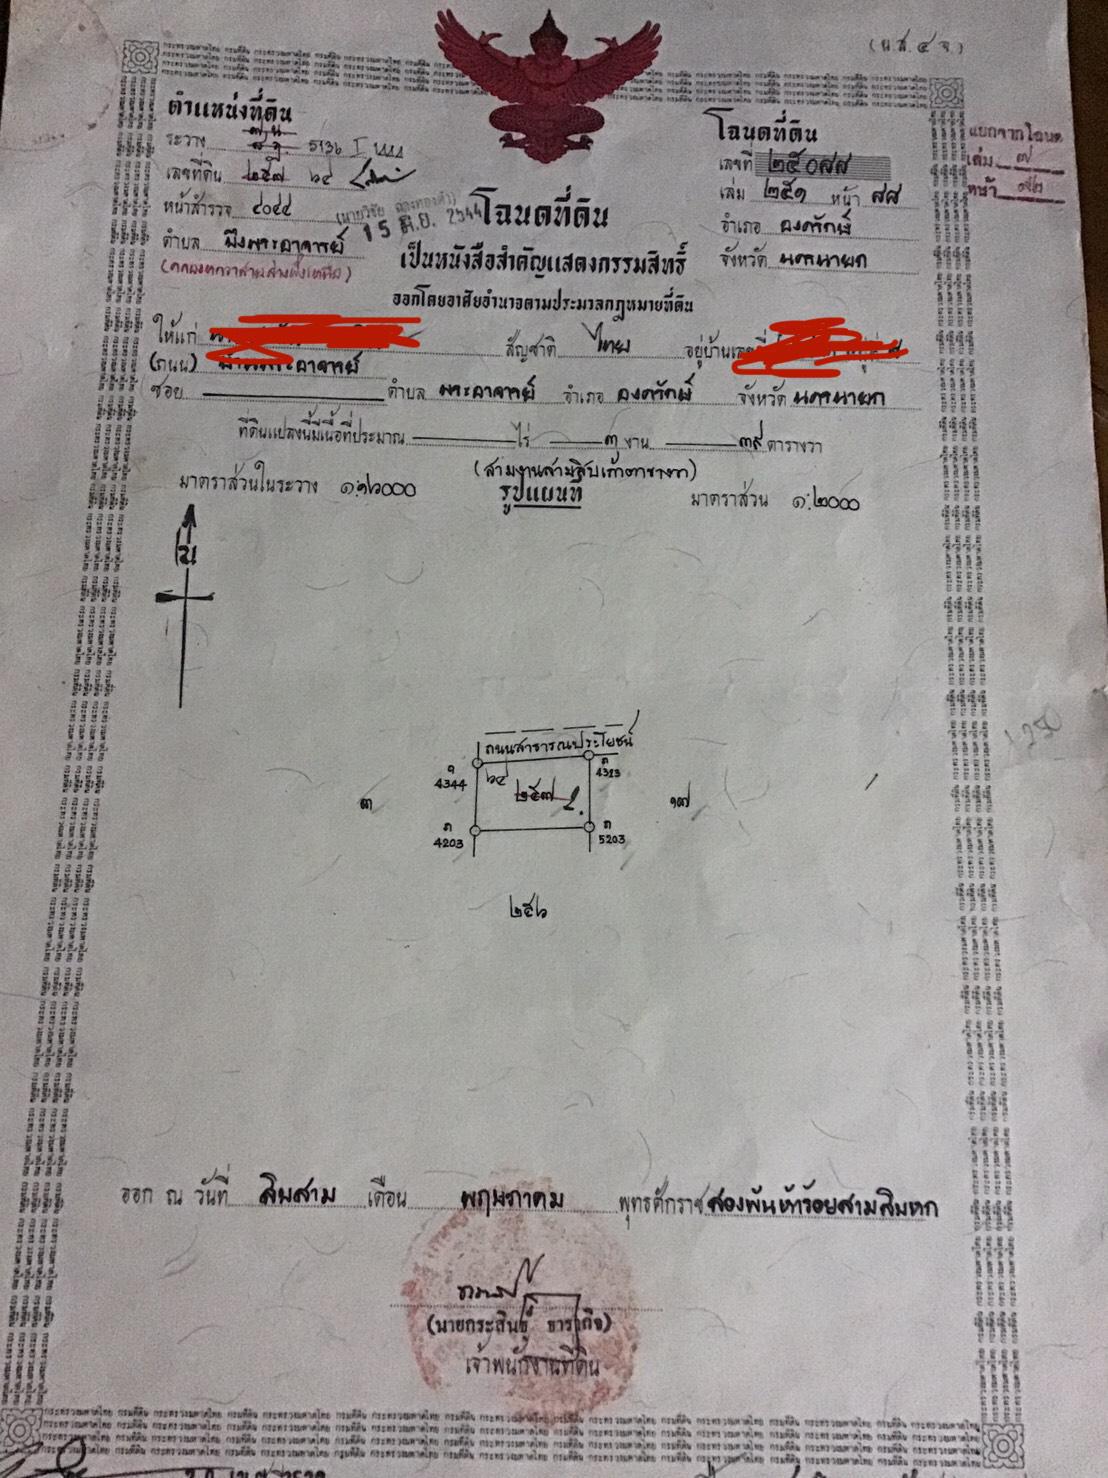 (น.ส. ๔ จ)
ตำแหน่งที่ดิน
ระวาง 5136 I
เลขที่ดิน ๒๕๗ ๖๔
หน้าสำรวจ ๔๐๔๔
ตำบล บึงพระอาจารย์
15 มิ.ย. 2544
โฉนดที่ดิน
เลขที่ ๒๕๐๘๘
เล่ม ๒๕๑ หน้า ๘๘
อำเภอ องครักษ์
จังหวัด นครนายก
แยกจากโฉนด
เล่ม ๗
หน้า
โฉนดที่ดิน
เป็นหนังสือสำคัญแสดงกรรมสิทธิ์
ออกโดยอาศัยอำนาจตามประมวลกฎหมายที่ดิน
ให้แก่ สัญชาติ ไทย อยู่บ้านเลขที่
(ถนน)
ซอย ตำบล พระอาจารย์ อำเภอ องครักษ์ จังหวัด นครนายก
ที่ดินแปลงนี้มีเนื้อที่ประมาณ ไร่ ๓ งาน ๓๙ ตารางวา
(สามงานสามสิบเก้าตารางวา)
มาตราส่วนในระวาง รูปแผนที่ มาตราส่วน ๑:๒๐๐๐
น
ถนนสาธารณประโยชน์
4344 ๖๔ 4323
๓ ๒๕๗ ๑๗
4203 5203
๒๕๖
ออก ณ วันที่ สิบสาม เดือน พฤษภาคม พุทธศักราช สองพันห้าร้อยสามสิบหก
(นายกระสินธุ์ ธารากิจ)
เจ้าพนักงานที่ดิน